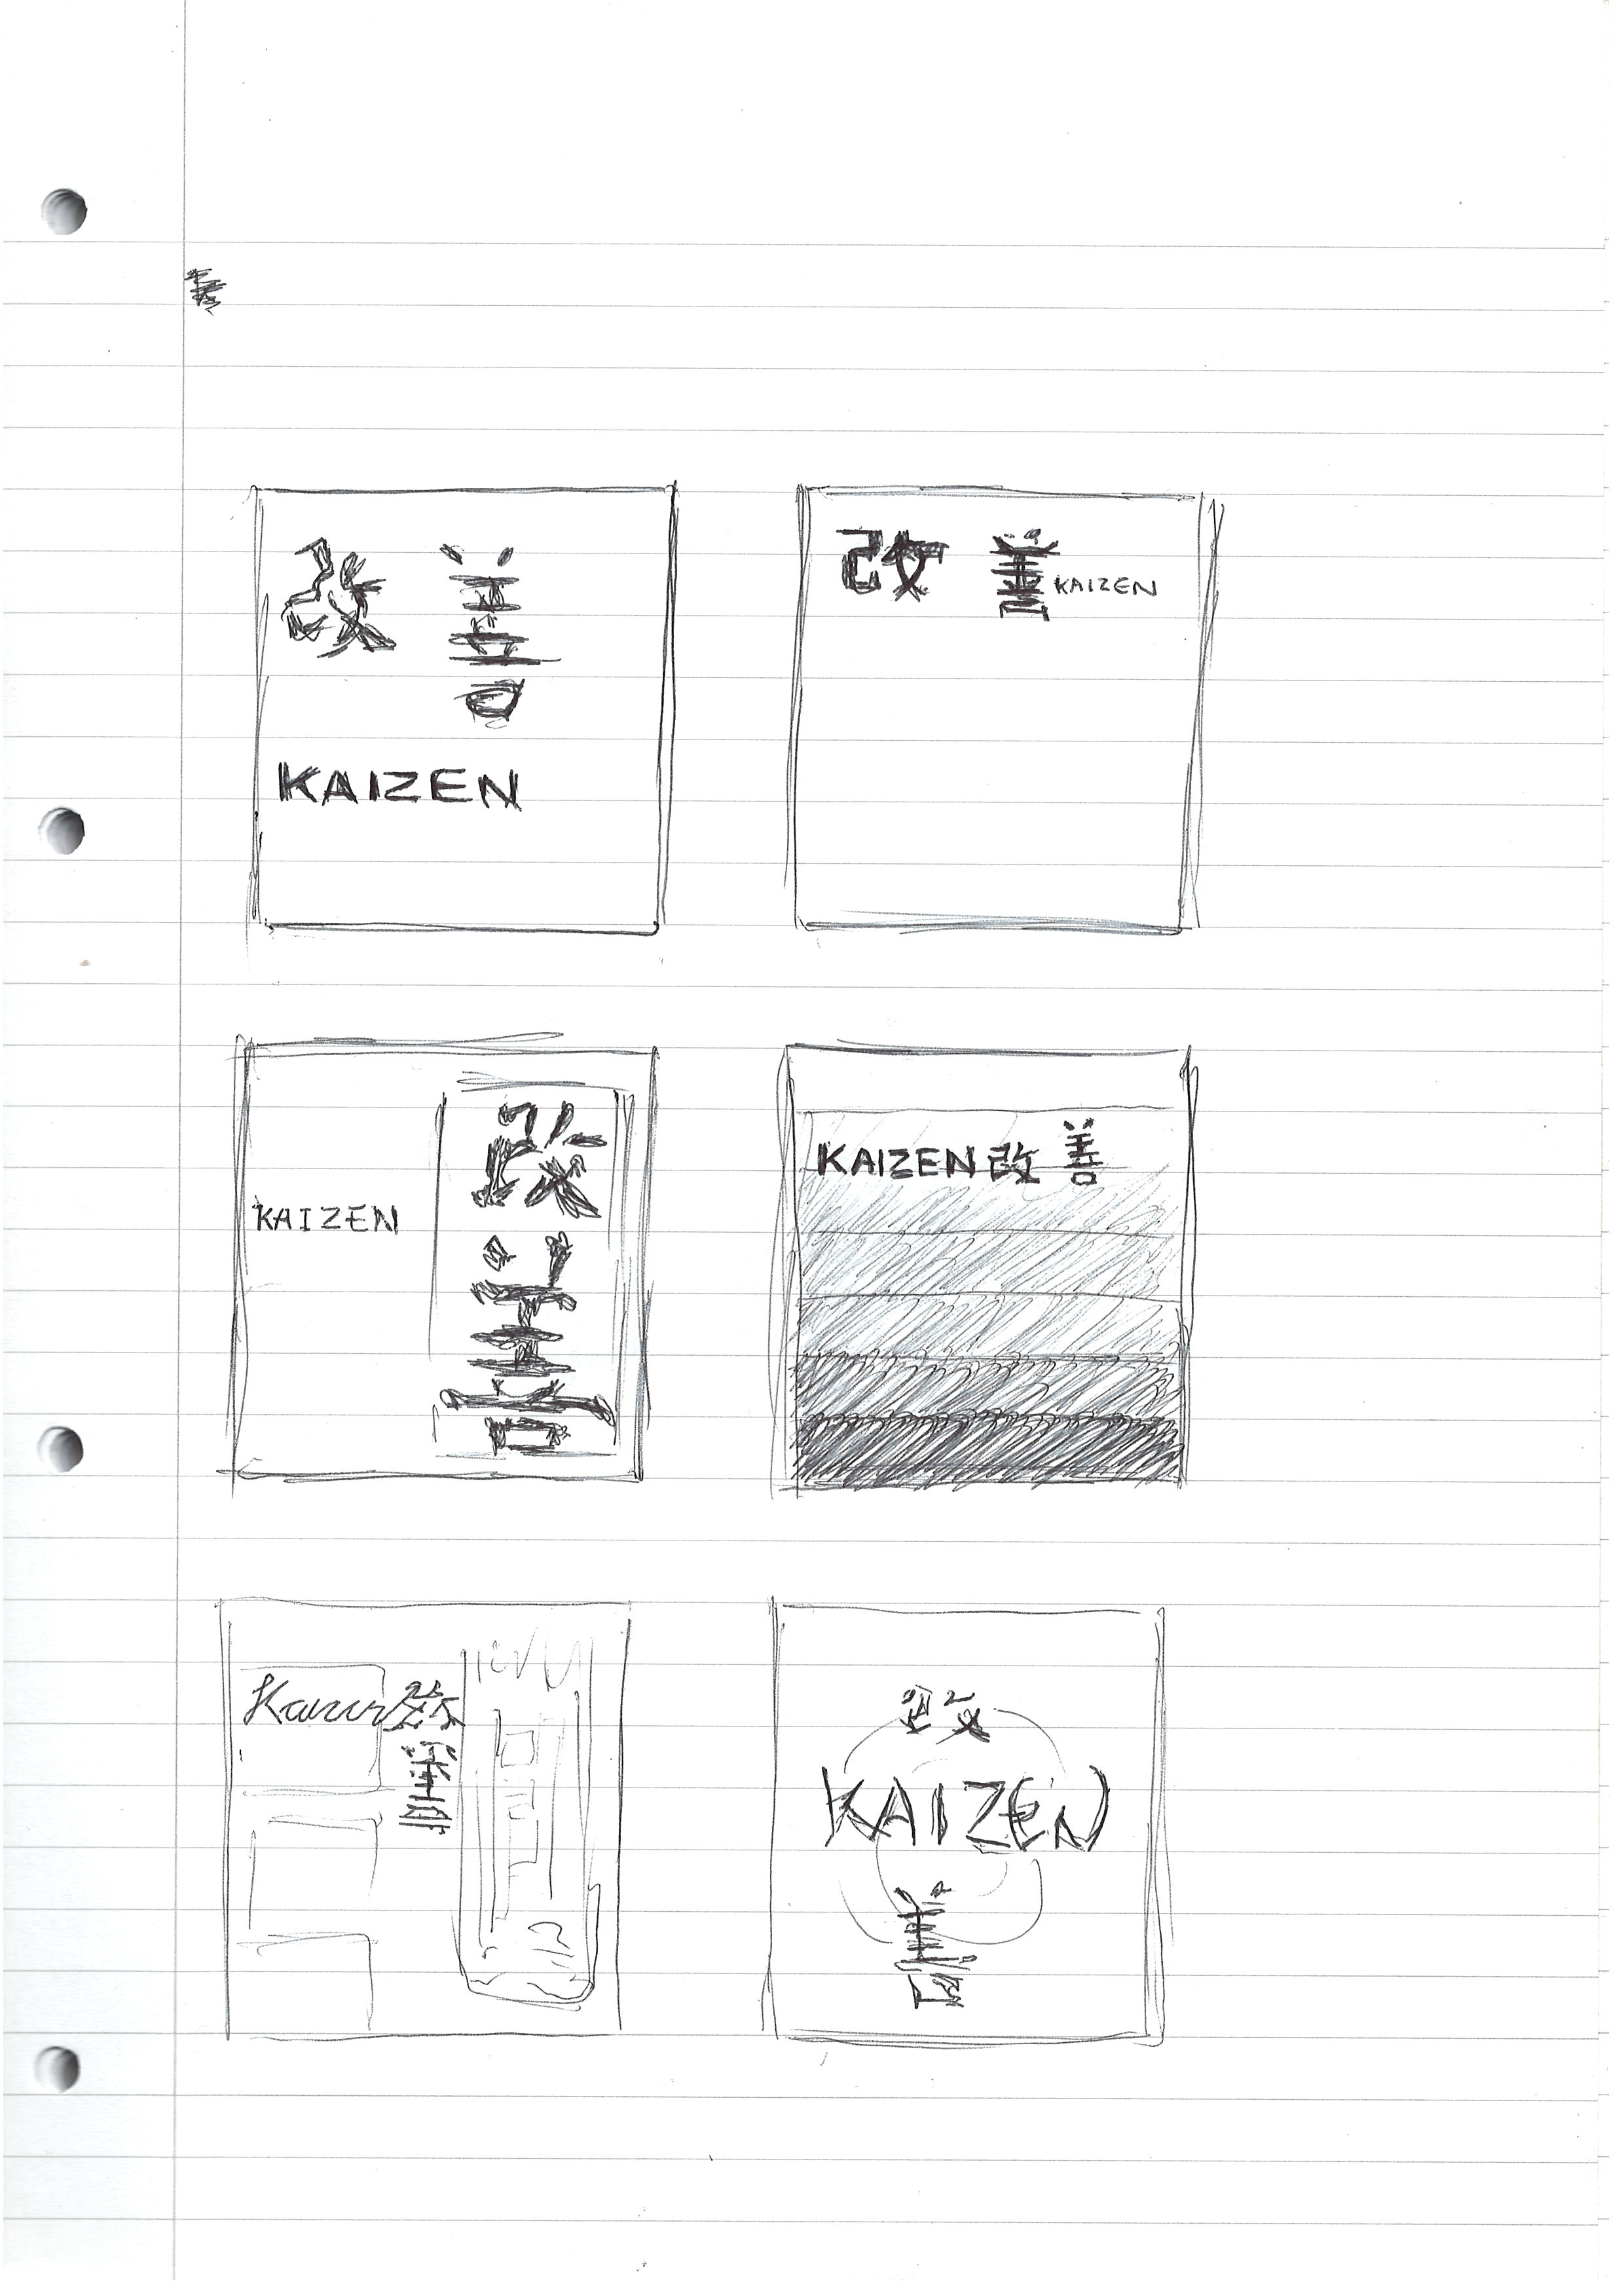 改善
KAIZEN
改善 KAIZEN
改
KAIZEN
善
KAIZEN 改善
Kaizen 改
善
改
KAIZEN
善